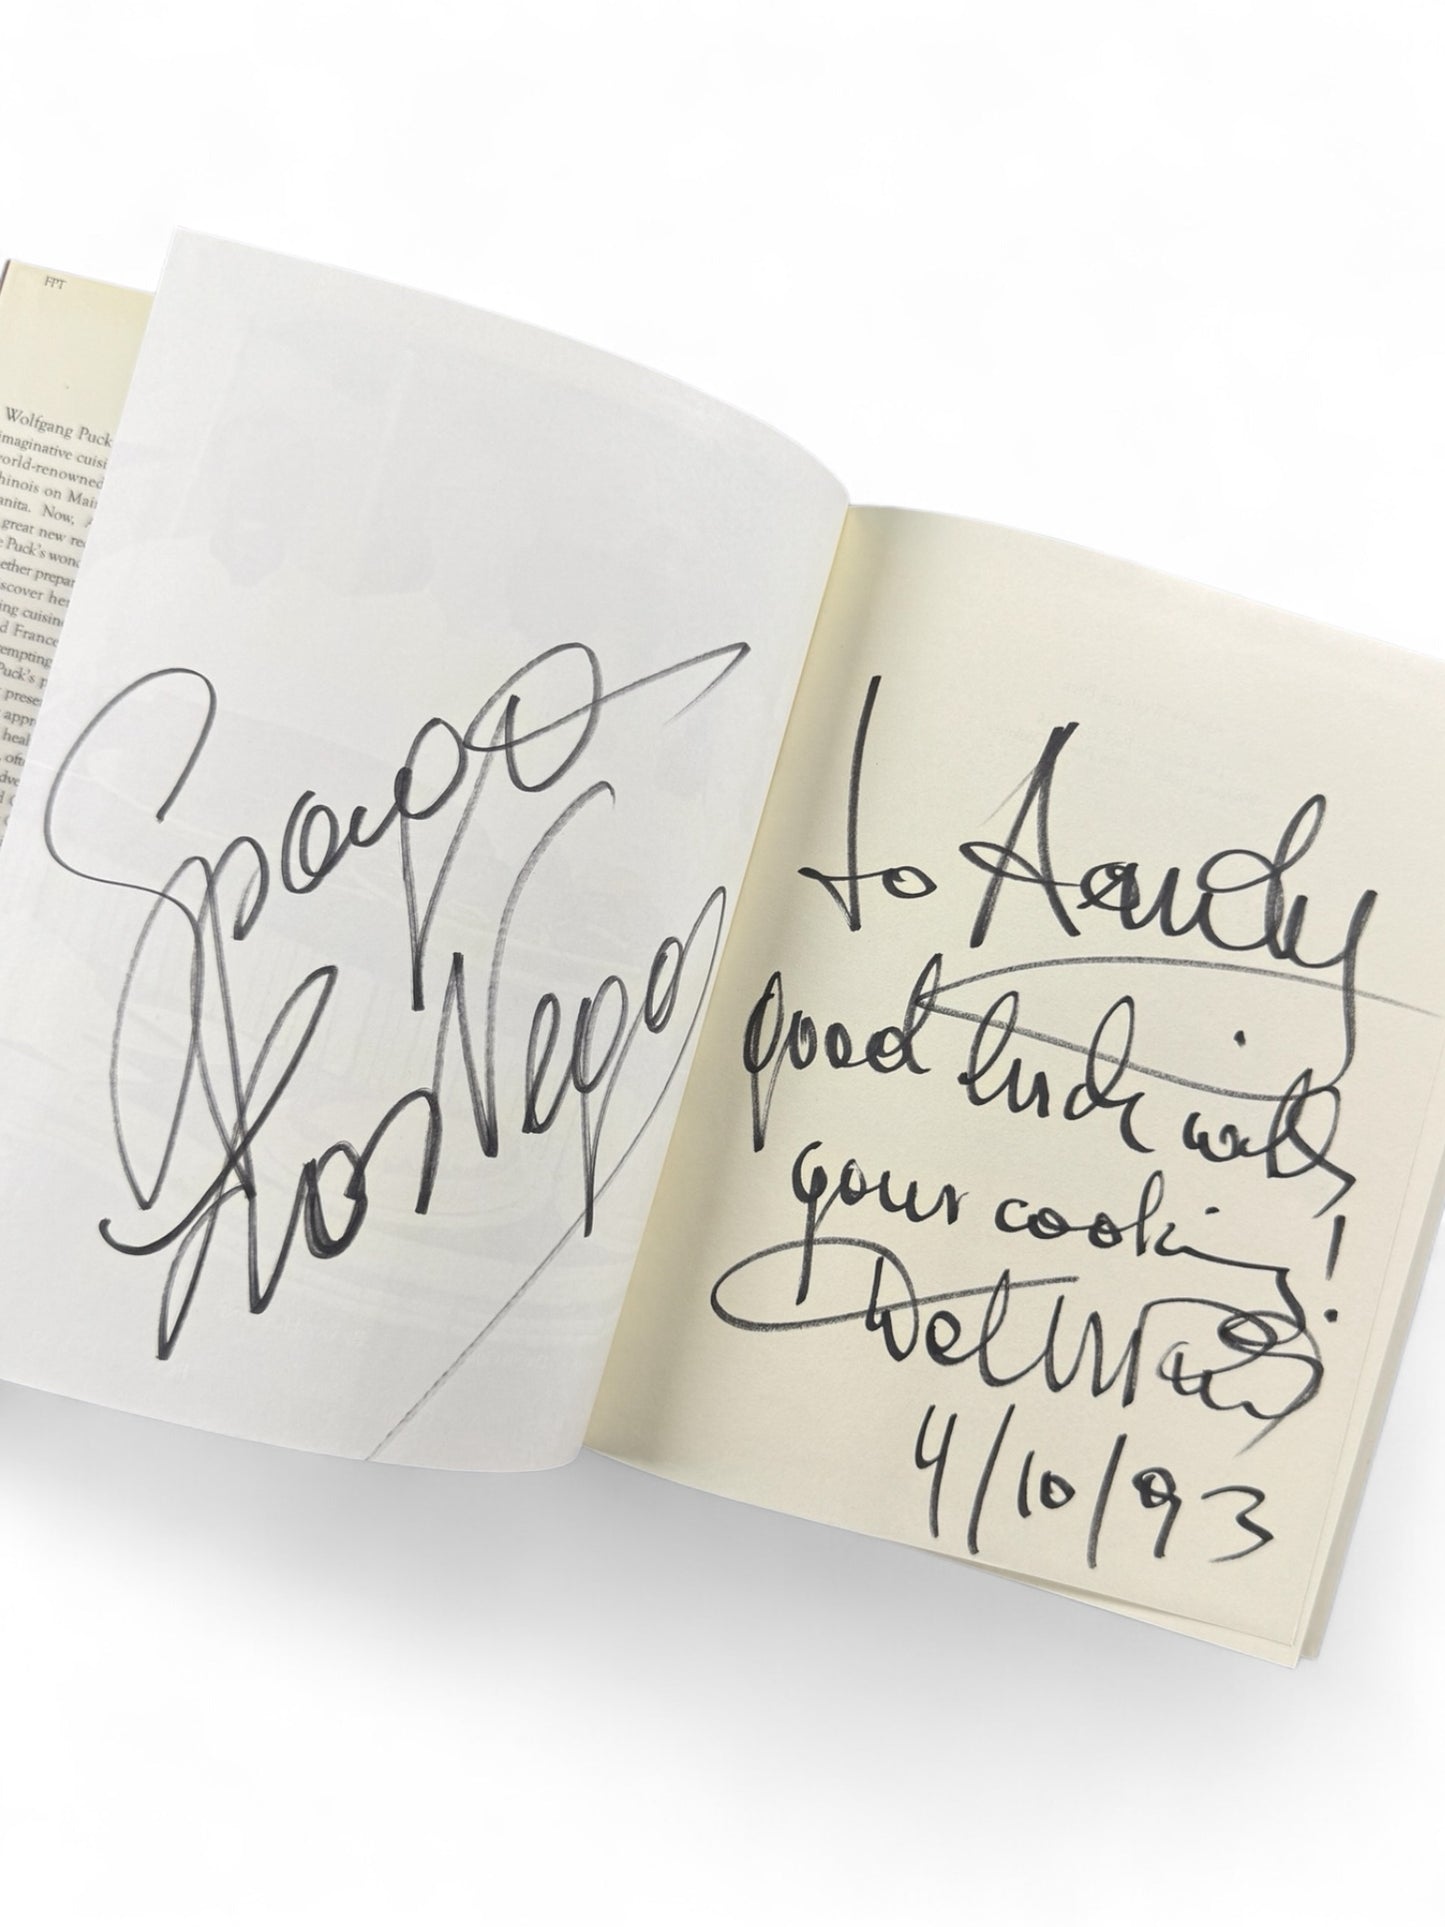 FPT
Wolfgang Puck
imaginative cuisi
orld-renowned
hinois on Mai
anita. Now, A
great new re
e Puck's won
ether prepar
scover he
ing cuisin
d France
empting
Puck's p
prese
appr
heal
oft
dve
d C
Spago
Las Vegas
to Aandy
good luck with
your cooking!
4/10/93